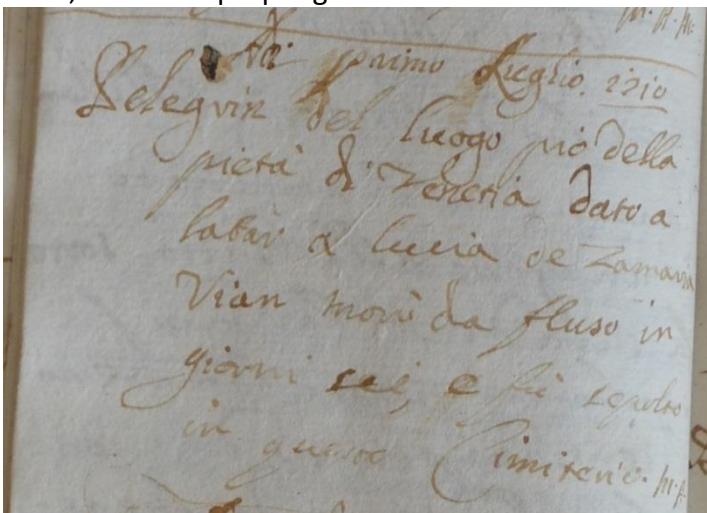 Adi primo Luglio. 1710
Pelegrin del luogo pio della
pietà di Venetia dato a
lattar a Lucia de Zamaria
Vian morì da fluso in
giorni sei, e fù sepolto
in questo Cimiterio.